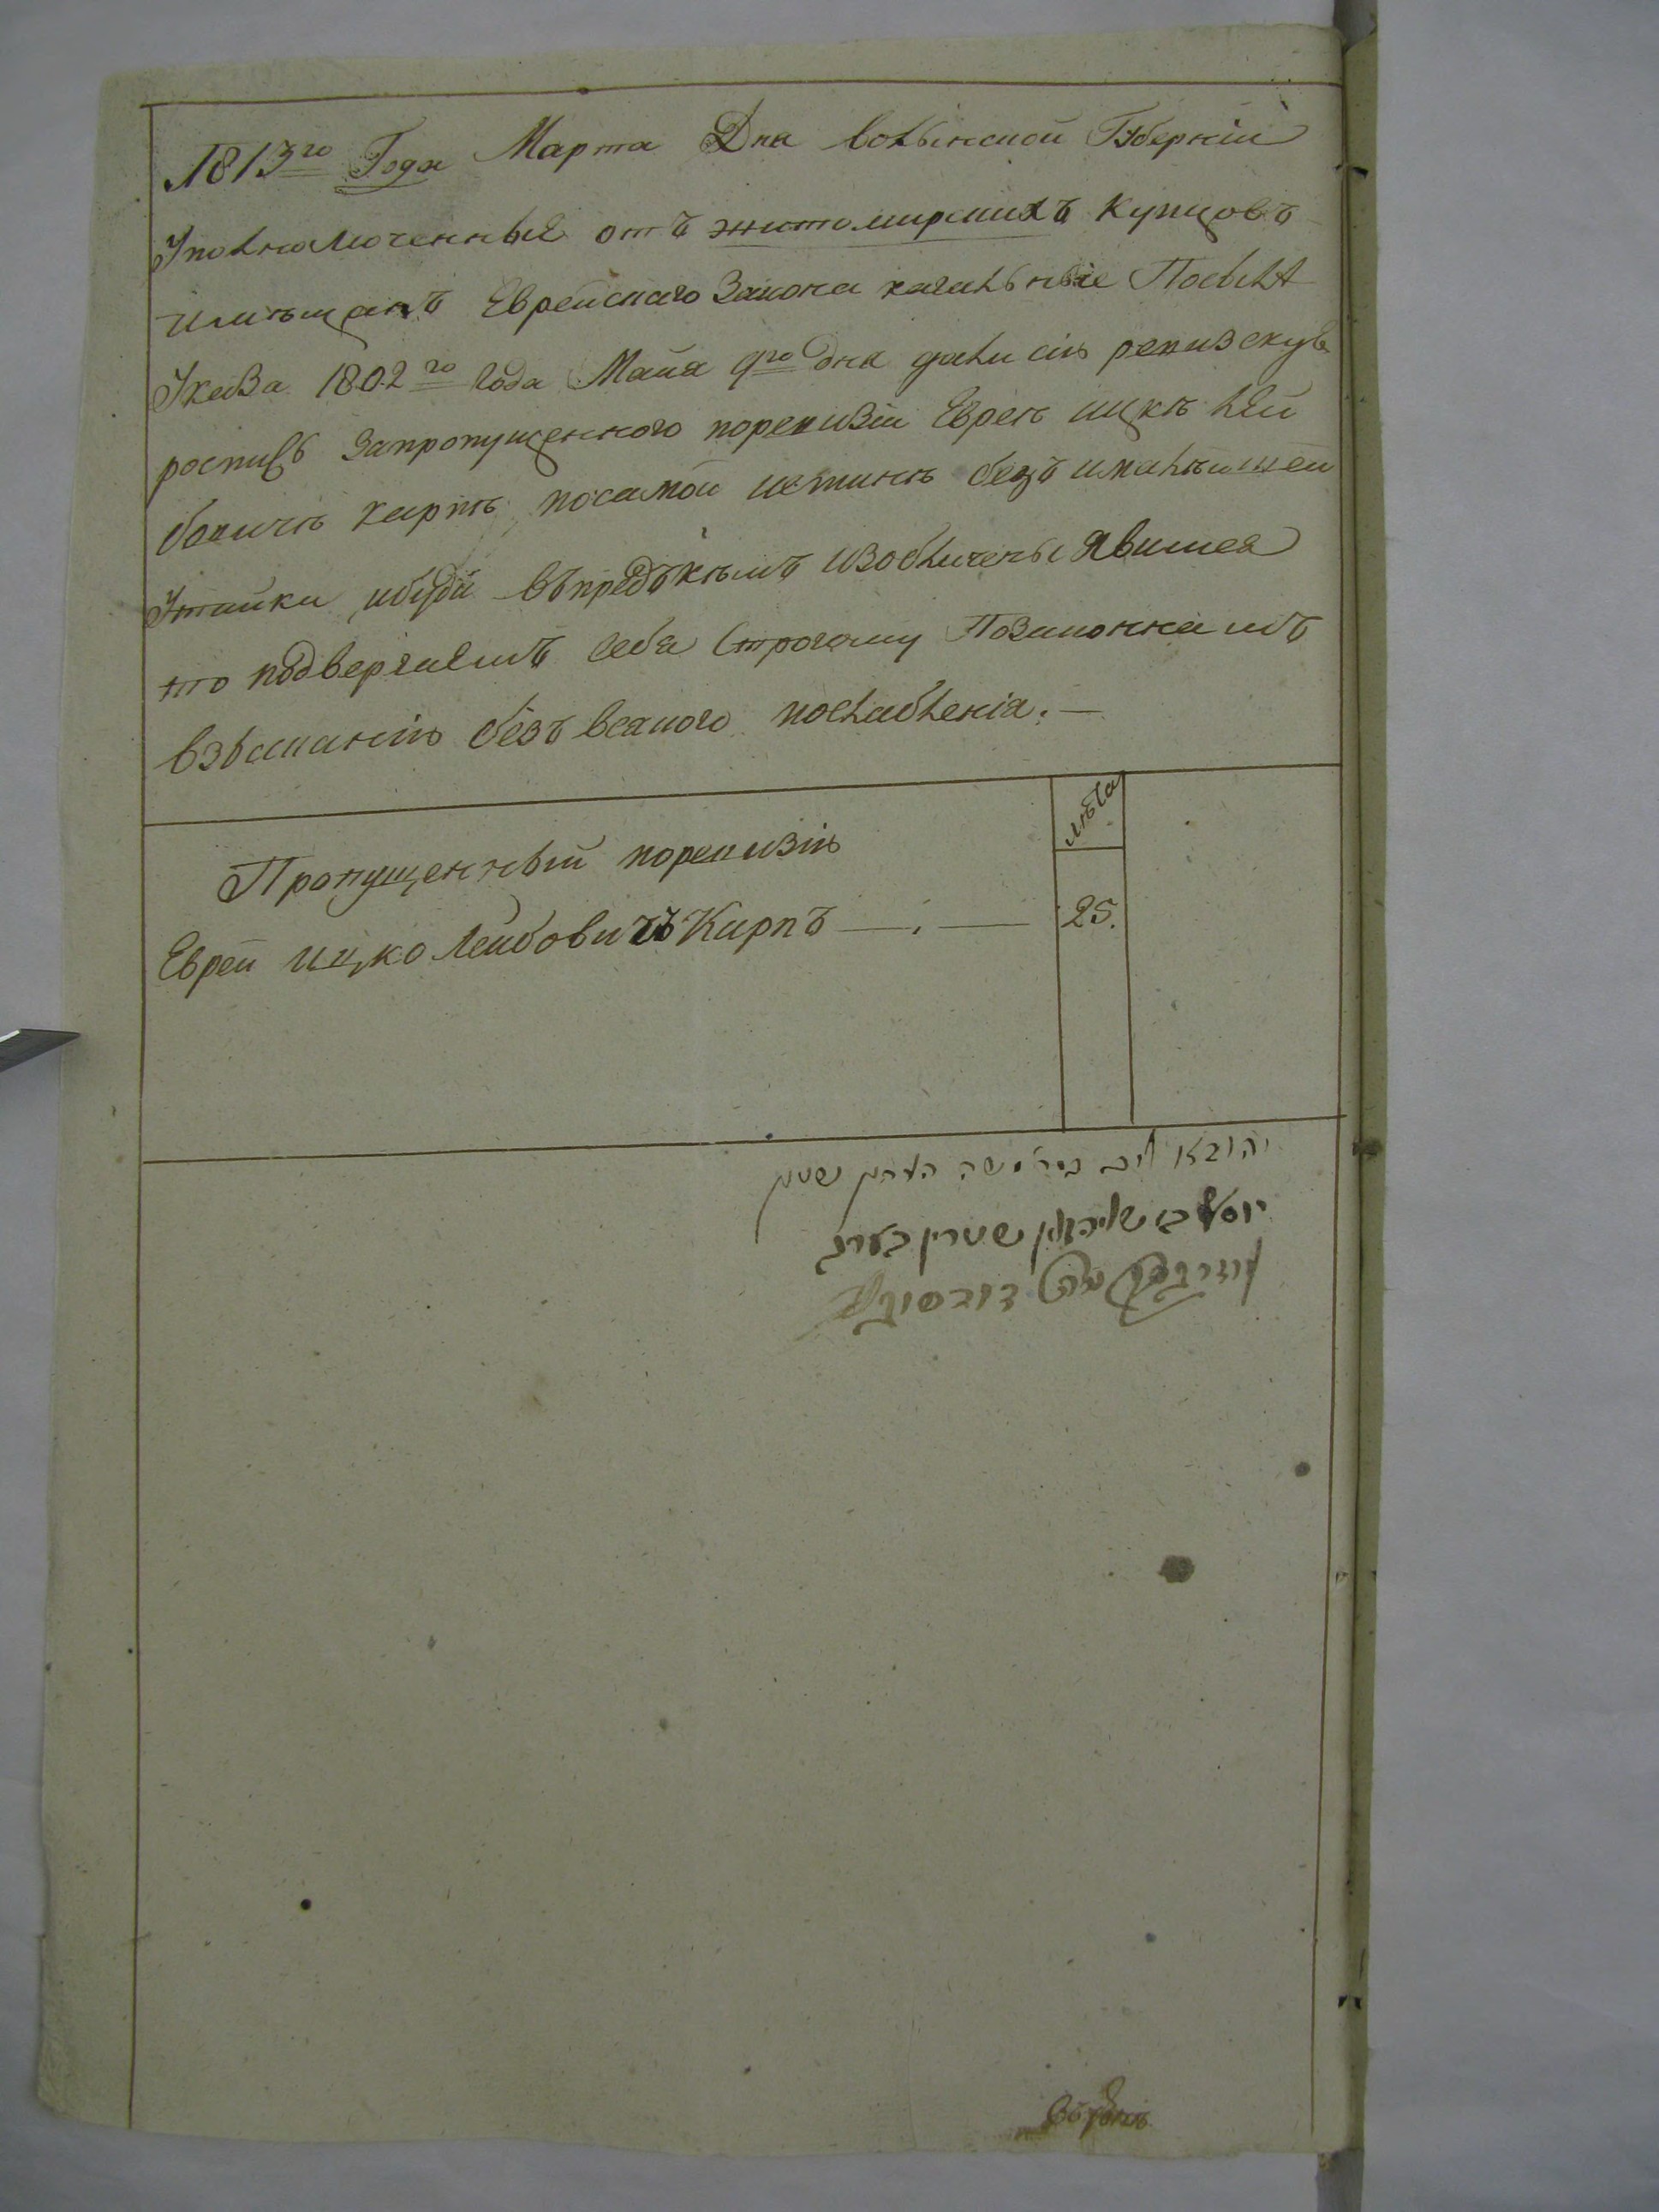 1813го Года Марта Дня волынской Губерніи
Уполномоченныя отъ житомирскихъ купцовъ
имѣщанъ Еврейскаго Закона кагальные Посылѣ
Указа 1802го Года Майя 9го дня дали сію ревизскую
роспись Запропущенного поревизіи Еврея ицкѣ Лей
бовичѣ кирпѣ посамой истиннѣ безъималѣйшей
Утайки ибуди въпредъкѣмъ изобличены явимся
то подвергаемъ себя Строгому Позаконнамъ
взысканію безъ всякого послабленія. —
лѣта
Пропущенный поревизіи
Еврей ицко Лейбовичъ Кирпъ — . — 25.